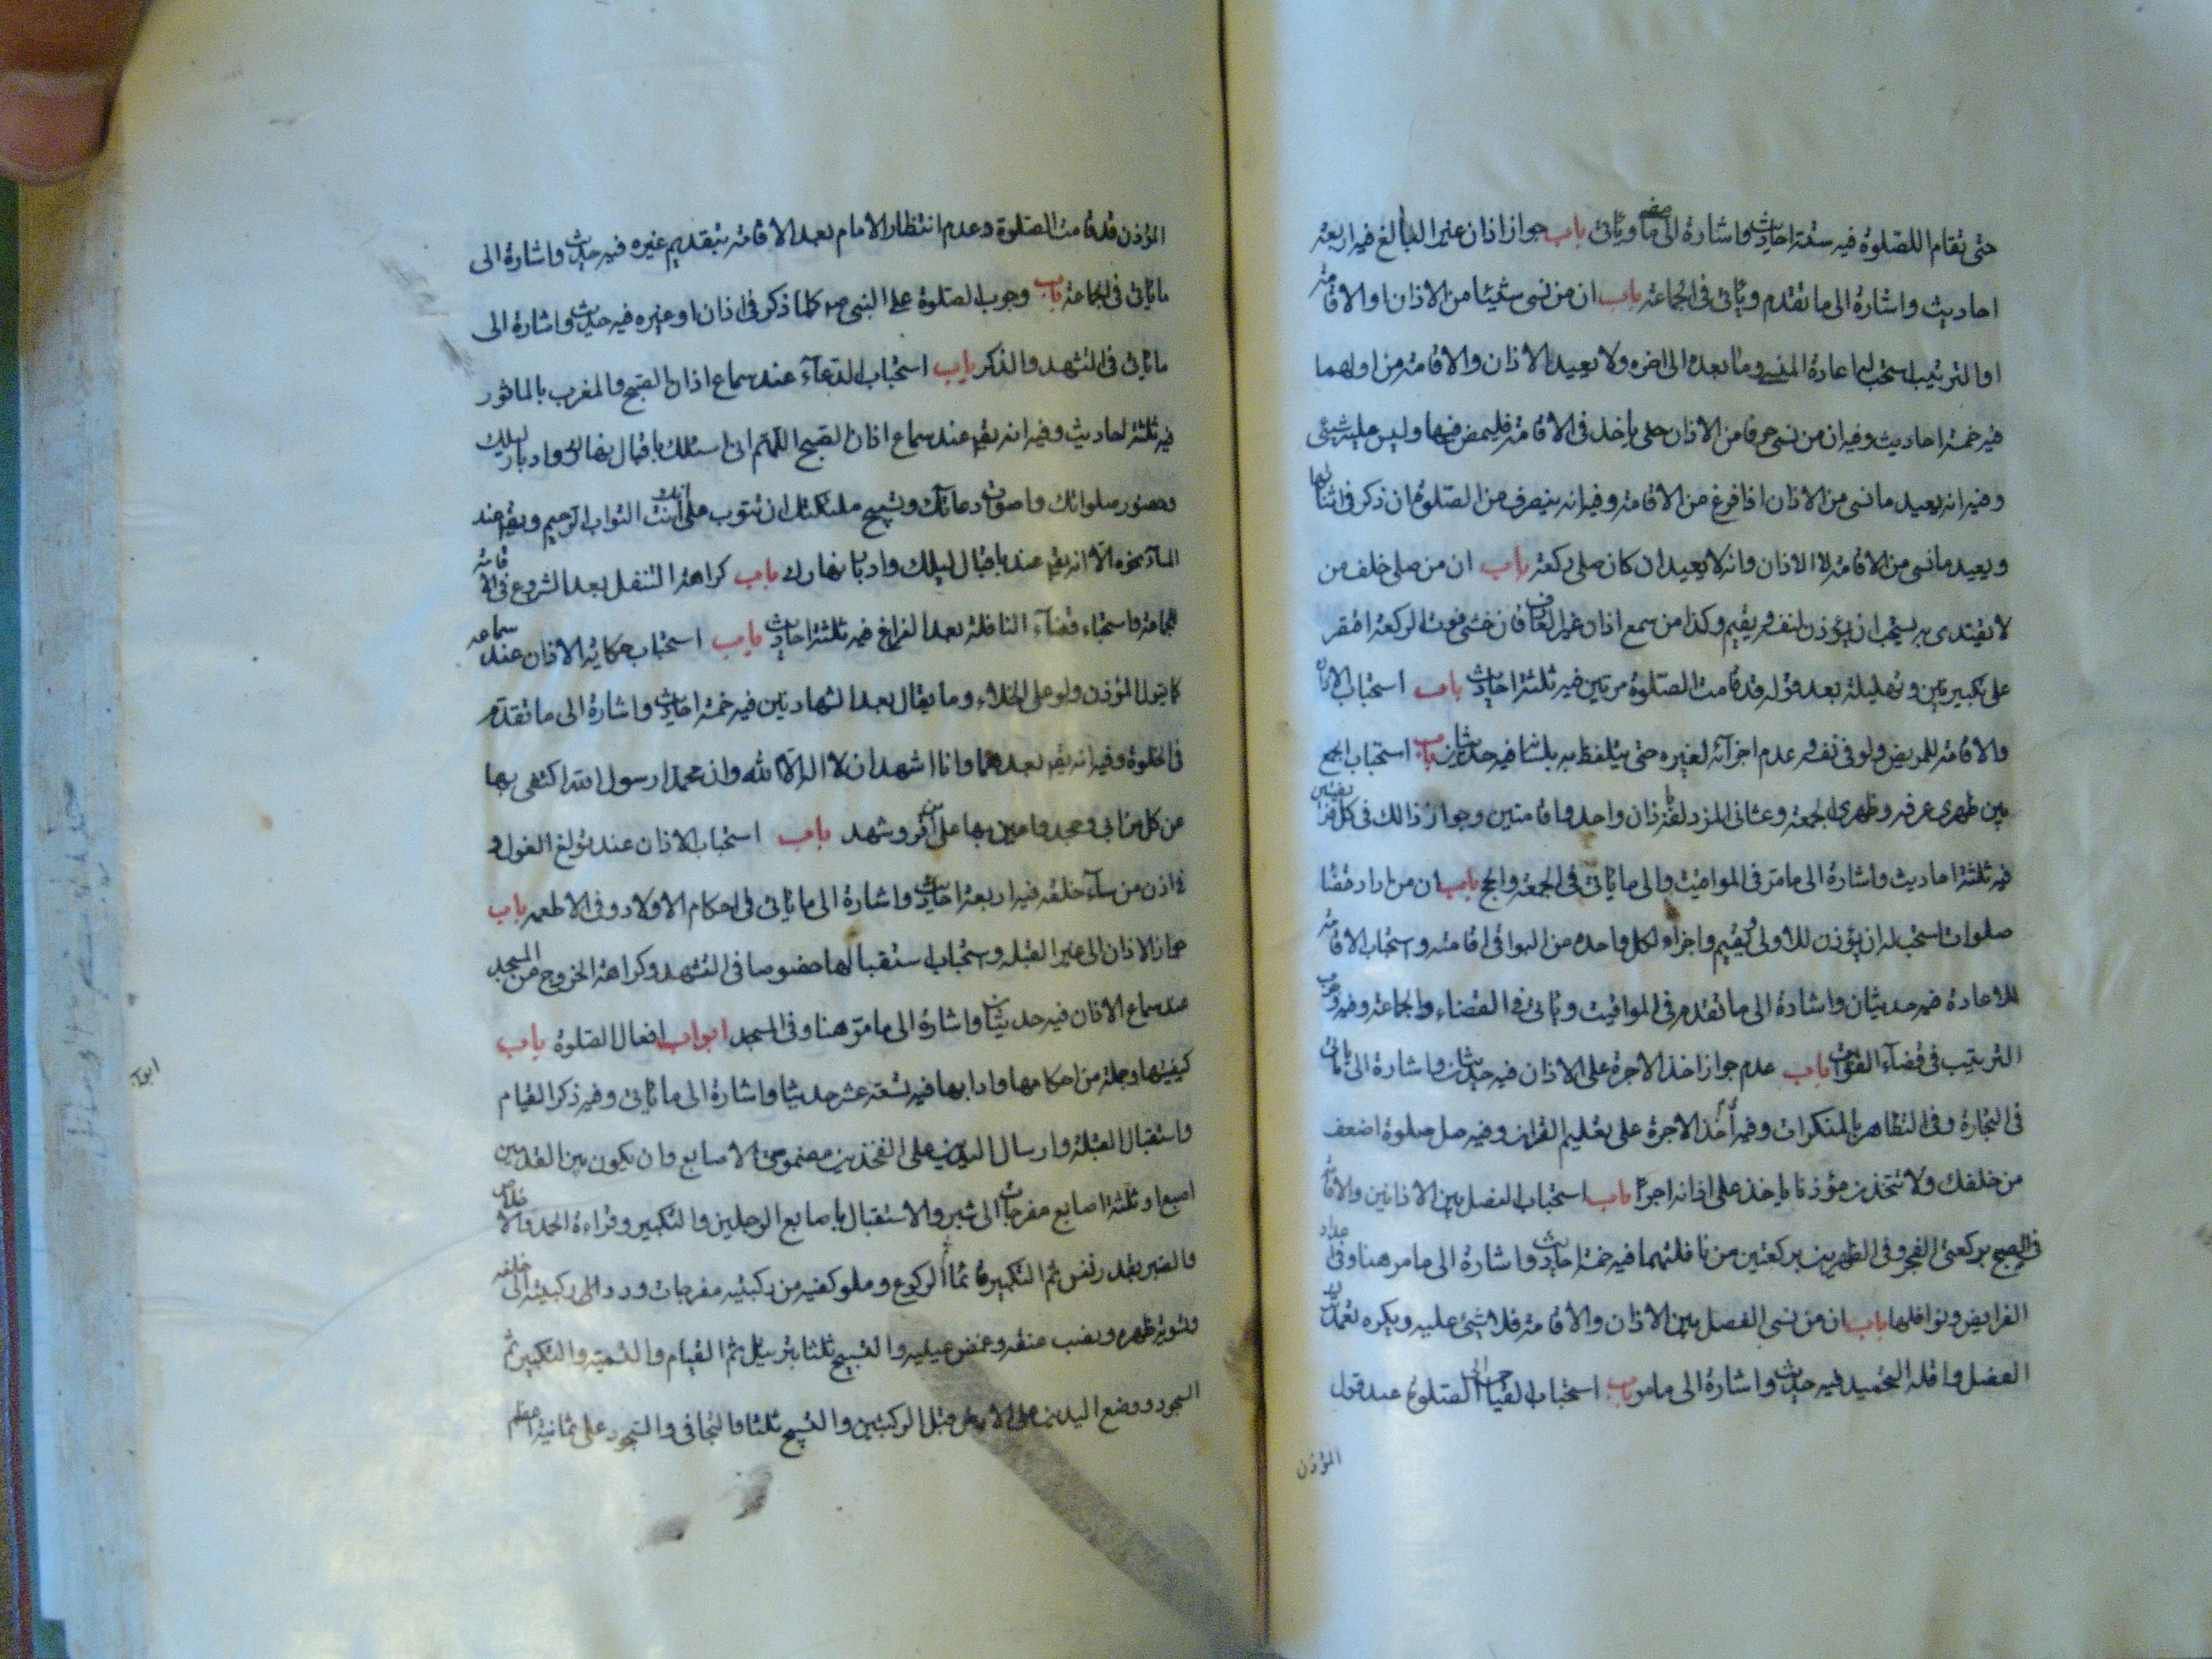 حتى تقام الصلوة فيه ستة احاديث واشارة الى ما مضى وياتى باب جواز اذان غير البالغ فيه اربعة
احاديث واشارة الى ما تقدم وياتى فى الجماعة باب ان من نسى شيئا من الاذان او الاقامة
او الترتيب استحب له اعادة المنسى وما بعده الى اخره ولا يعيد الاذان والاقامة من اولهما
فيه خمسة احاديث وفيه ان من نسى حرفا من الاذان حتى ياخذ فى الاقامة فليمض فيها وليس عليه شيئى
وفيه انه يعيد ما نسى من الاذان اذا فرغ من الاقامة وفيه انه ينصرف من الصلوة ان ذكر فى اثنائها
ويعيد ما نسى من الاقامة لا الاذان وانه لا يعيد ان كان صلى ركعة باب ان من صلى خلف من
لا يقتدى به يستحب ان يؤذن لنفسه ويقيم وكذا من سمع اذان غير العارف فان خشى فوت الركعة اقتصر
على تكبيرتين وتهليلة بعد قوله قد قامت الصلوة مرتين فيه ثلثة احاديث باب استحباب الاذان
والاقامة للمريض ولو فى نفسه وعدم اجزائه لغيره حتى يتلفظ به بلسانه فيه حديثان باب استحباب الجمع
بين ظهرى عرفه وظهرى الجمعة وعشائى المزدلفة باذان واحد واقامتين وجواز ذالك فى كل فريضتين
فيه ثلثة احاديث واشارة الى ما مر فى المواقيت والى ما ياتى فى الجمعة والحج باب ان من اراد قضا
صلوات استحب له ان يؤذن للاولى ويقيم واجزاه لكل واحدة من البواقى اقامته واستحباب الاقامة
للاعادة فيه حديثان واشارة الى ما تقدم فى المواقيت وياتى فى القضاء والجماعة وفيه وجوب
الترتيب فى قضآء الفوائت باب عدم جواز اخذ الاجرة على الاذان فيه حديثان واشارة الى ما ياتى
فى التجارة وفى التظاهر بالمنكرات وفيه اخذ الاجرة على تعليم القران وفيه صل صلوة اضعف
من خلفك ولا تتخذن مؤذنا ياخذ على اذانه اجرا باب استحباب الفصل بين الاذانين والاقامة
فى الصبح بركعتى الفجر وفى الظهرين بركعتين من نافلتهما فيه خمسة احاديث واشارة الى ما مر هنا وفى اعداد
الفرايض ونوافلها باب ان من نسى الفصل بين الاذان والاقامة فلا شيئى عليه ويكره تعمد ترك
الفصل واقله التحميد فيه حديث واشارة الى ما مر باب استحباب القيام الى الصلوة عند قول
المؤذن
المؤذن قد قامت الصلوة وعدم انتظار الامام بعد الاقامة بتقديم غيره فيه حديث واشارة الى
ما ياتى فى الجماعة باب وجوب الصلوة على النبى ص كلما ذكر فى اذان او غيره فيه حديث واشارة الى
ما ياتى فى التشهد والذكر باب استحباب الدعآء عند سماع اذان الصبح والمغرب بالماثور
فيه ثلثة احاديث وفيه انه يقم عند سماع اذان الصبح اللهم انى اسئلك باقبال نهارك وادبار ليلك
وحضور صلواتك واصوات دعاتك وتسبيح ملئكتك ان تتوب على انك انت التواب الرحيم ويقم عند
المسآء نحوه الا انه يقم عند باقبال ليلك وادبار نهارك باب كراهة التنفل بعد الشروع فى الاقامة
للجماعة واستحباب قضآء النافلة بعد الفراغ فيه ثلثة احاديث باب استحباب حكاية الاذان عند سماعه
كما يقول المؤذن ولو على الخلاء وما يقال بعد الشهادتين فيه خمسة احاديث واشارة الى ما تقدم
فى الخلوة وفيه انه يقم بعدهما وانا اشهد ان لا اله الا الله وان محمدا رسول الله اكتفى بها
عن كل من ابى وجحد واعين بها على من اقر وشهد باب استحباب الاذان عند تولع الغول و
فى اذن من سآء خلقه فيه اربعة احاديث واشارة الى ما ياتى فى احكام الاولاد وفى الاطعمه باب
جواز الاذان الى غير القبلة واستحباب استقبالها خصوصا فى التشهد وكراهة الخروج من المسجد
عند سماع الاذان فيه حديثان واشارة الى ما مر هنا وفى المسجد ابواب افعال الصلوة باب
كيفيتها وجملة من احكامها وادابها فيه تسعة عشر حديثا واشارة الى ما ياتى وفيه ذكر القيام
واستقبال القبلة وارسال اليدين على الفخذين مضمومتى الاصابع وان يكون بين القدمين
اصبع او ثلثة اصابع مفرجات الى شبر والاستقبال باصابع الرجلين والتكبير وقراءة الحمد والاخلاص
والصبر بقدر نفس ثم التكبير قائما ثم الركوع وملو كفيه من ركبتيه مفرجات ورد ركبتيه الى خلفه
وتسوية ظهره ونصب عنقه وغمض عينيه والتسبيح ثلثا بترتيل ثم القيام والتسميع والتكبير ثم
السجود ووضع اليدين على الارض قبل الركبتين والتسبيح ثلثا والتجافى والسجود على ثمانية اعظم